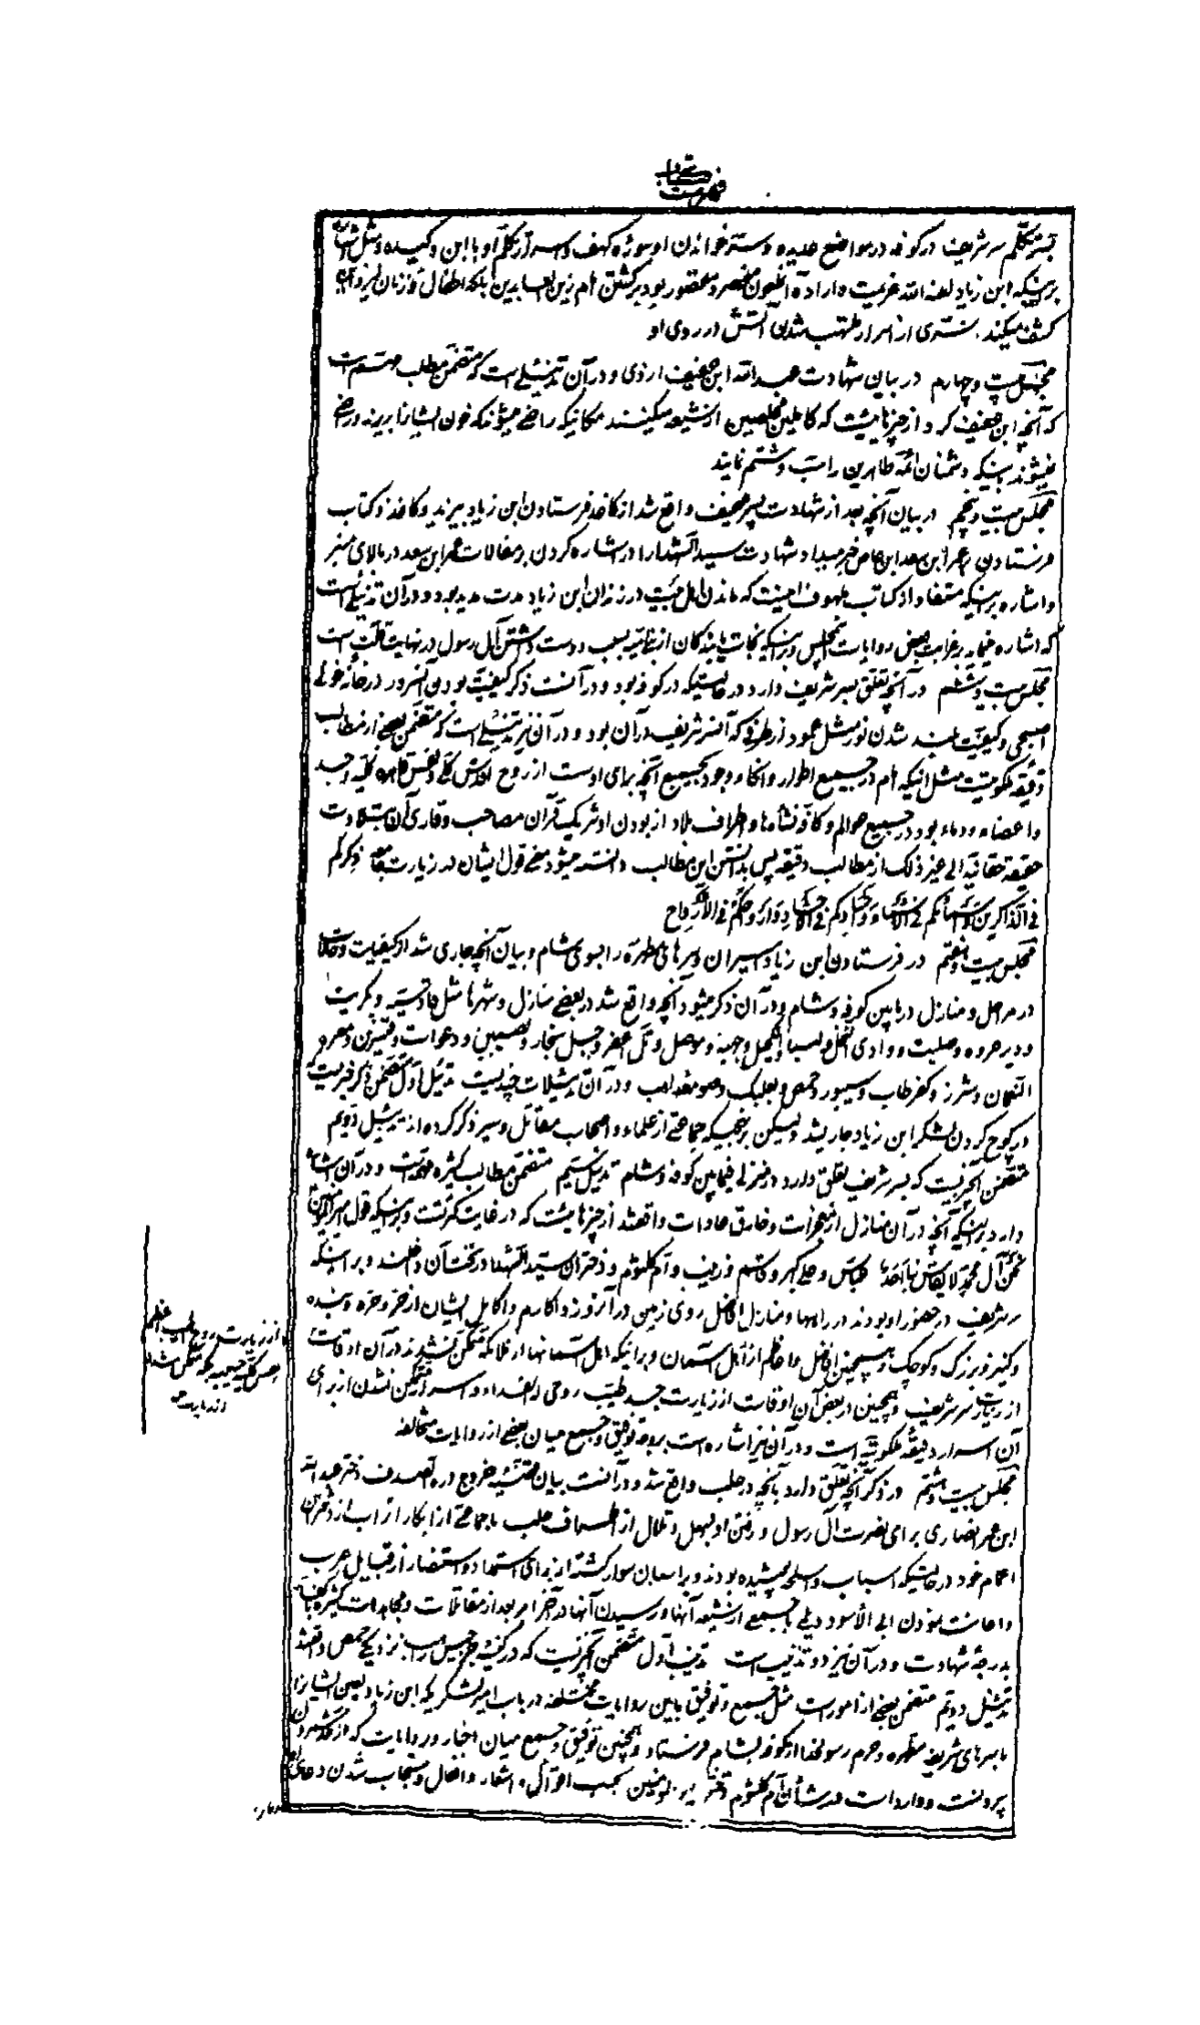 فهرست کتاب
تکلم سر شریف در کوفه در مواضع عدیده و ستر خواندن او سوره کهف و سر آن تکلم او با ابن وکیده و مثل
بر اینکه ابن زیاد لعنه الله عزیمت و اراده آن ملعون منحصر و مقصور بود بر کشتن امام زین العابدین بلکه اطفال و زنان
کشف میکند ستری از اسرار ملتهب شدن آتش در روی او
مجلس بیست و چهارم در بیان شهادت عبد الله ابن عفیف ازدی و در آن تذییلی است که متضمن مطلب مهم است
که آنچه ابن عفیف کرد از چیزهائیست که کاملین مخلصین از شیعه میکنند مکانیکه راضی میشوند که خون ایشانرا بریزند و راضی
نمیشوند باینکه دشمنان ائمه طاهرین را سب و شتم نمایند
مجلس بیست و پنجم در بیان آنچه بعد از شهادت پسر عفیف واقع شد از کاغذ فرستادن ابن زیاد بیزید و کاغذ و کتاب
فرستادن بعمر ابن سعد ابن عاص خبر میداد شهادت سید الشهدا را و اشاره کردن بر مقالات عمر ابن سعد در بالای منبر
و اشاره بر اینکه مستفاد از کتاب ملهوف اینست که ماندن اهل بیت در زندان ابن زیاد مدت مدید بود و در آن تذییلی است
که اشاره مینماید بر غرابت بعض روایات مجلس و بر اینکه نجات یابندگان از بنی امیه بسبب دوست داشتن آل رسول در نهایت قلت است
مجلس بیست و ششم در آنچه تعلق بسر شریف دارد در حالتیکه در کوفه بود و در آنست ذکر کیفیت بودن آنسرور در خانه خولی
اصبحی و کیفیت بلند شدن نور مثل عمود از ظرفی که آنسر شریف در آن بود و در آن نیز تذییلی است که متضمن بعضی از مطالب
دقیقه ملکوتیت مثل اینکه امام در جمیع اطوار و انحاء وجود بجمیع آنچه برای اوست از روح اقدس کلی و نفس قاهره کلیه و جسد
و اعضاء و دماء بود در جمیع عوالم و کافه نشآت و اطراف بلاد از بودن او شریک قرآن مصاحب و قاری آن بتلاوت
حقیقیه حقانیه الی غیر ذلک از مطالب دقیقه پس بدانستن این مطالب دانسته میشود معنی قول ایشان در زیارت جامعه ذکرکم
فی الذاکرین و اسمائکم فی الاسماء و اجسادکم فی الاجساد و ارواحکم فی الارواح
مجلس بیست و هفتم در فرستادن ابن زیاد اسیران و سرهای مطهره را بسوی شام و بیان آنچه جاری شد از کیفیات و حالات
در مراحل و منازل در مابین کوفه و شام و در آن ذکر میشود آنچه واقع شد در بعضی منازل و شهرها مثل قادسیه و تکریت
و دیر عروه و صلیت و وادی النخل و لبنا و کحیل و جهینه و موصل و تل اعفر و جبل سنجار و نصیبین و دعوات و قنسرین و معره
النعمان و شیزر و کفر طاب و سیبور و حمص و بعلبک و صومعه راهب و در آن تذییلات چندیست تذییل اول متضمن ذکر چیزیست
در کوچ کردن لشکر ابن زیاد جاریشد ولیکن بر نهجیکه جماعتی از علماء و اصحاب مقاتل و سیر ذکر کرده اند تذییل دویم
متضمن آنچیزیست که بسر شریف تعلق دارد در منزلی فیمابین کوفه و شام تذییل سیم متضمن مطالب کثیره مهمه است و در آن اشاره
دارد بر اینکه آنچه در آن منازل از معجزات و خارق عادات واقعشد از چیزهائیست که در غایت کثرتست و بر اینکه قول امیر المؤمنین
نحن آل محمد لا یقاس بنا احد عباس و علی اکبر و قاسم و زینب و ام کلثوم و دختران سید الشهدا در تحت آن داخلند و بر اینکه
سر شریف در حضور او بودند در راهها و منازل افضل روی زمین در آنروز و اکارم و اکابر ایشان از حر و حره و بنده
و کنیز و بزرگ و کوچک و همچنین افضل و اعظم از اهل آسمان و بر اینکه اهل آسمانها از ملائکه متمکن نشدند در آن اوقات
از زیارت سر شریف و همچنین در بعض آن اوقات از زیارت جسد طیب روحی له الفداء و سر متمکن نشدن از برای
آن اسرار دقیقه ملکوتیه است و در آن نیز اشاره است بر وجه توفیق و جمیع میان بعضی از روایات متخالفه
مجلس بیست و هشتم در ذکر آنچه تعلق دارد بآنچه در حلب واقع شد و در آنست بیان قضیه خروج درة الصدف دختر عبد الله
ابن عمر انصاری برای نصرت آل رسول و رفتن او بسهل و تلال از اطراف حلب با جماعتی از ابکار اتراب از دختران
اعمام خود در حالتیکه اسباب و اسلحه پوشیده بودند و بر اسبان سوار گشته از برای استمداد و استنصار از قبایل عرب
و اعانت نمودن ابی الاسود دیلی با جمعی از شیعه آنها و رسیدن آنها در آخر امر بعد از مقاتلات و مجاهدات کثیره
بدرجه شهادت و در آن نیز دو تذییل است تذییل اول متضمن آنچیزیست که در کنیسه جرجیس راهب نزدیکی حمص واقعشد
تذییل دویم متضمن بعضی از اموراست مثل جمیع و توفیق بابین روایات مختلفه در باب امیر لشکریکه ابن زیاد لعین ایشانرا
با سرهای شریفه مطهره و حرم رسولخدا از کوفه بشام فرستاد و همچنین توفیق و جمیع میان اخبار و روایات که از
پرونست و وارد است در شأن ام کلثوم دختر امیر المؤمنین بحسب اقوال و اشعار و افعال و مستجاب شدن دعای
از زیارت روح
متمکن نشدند